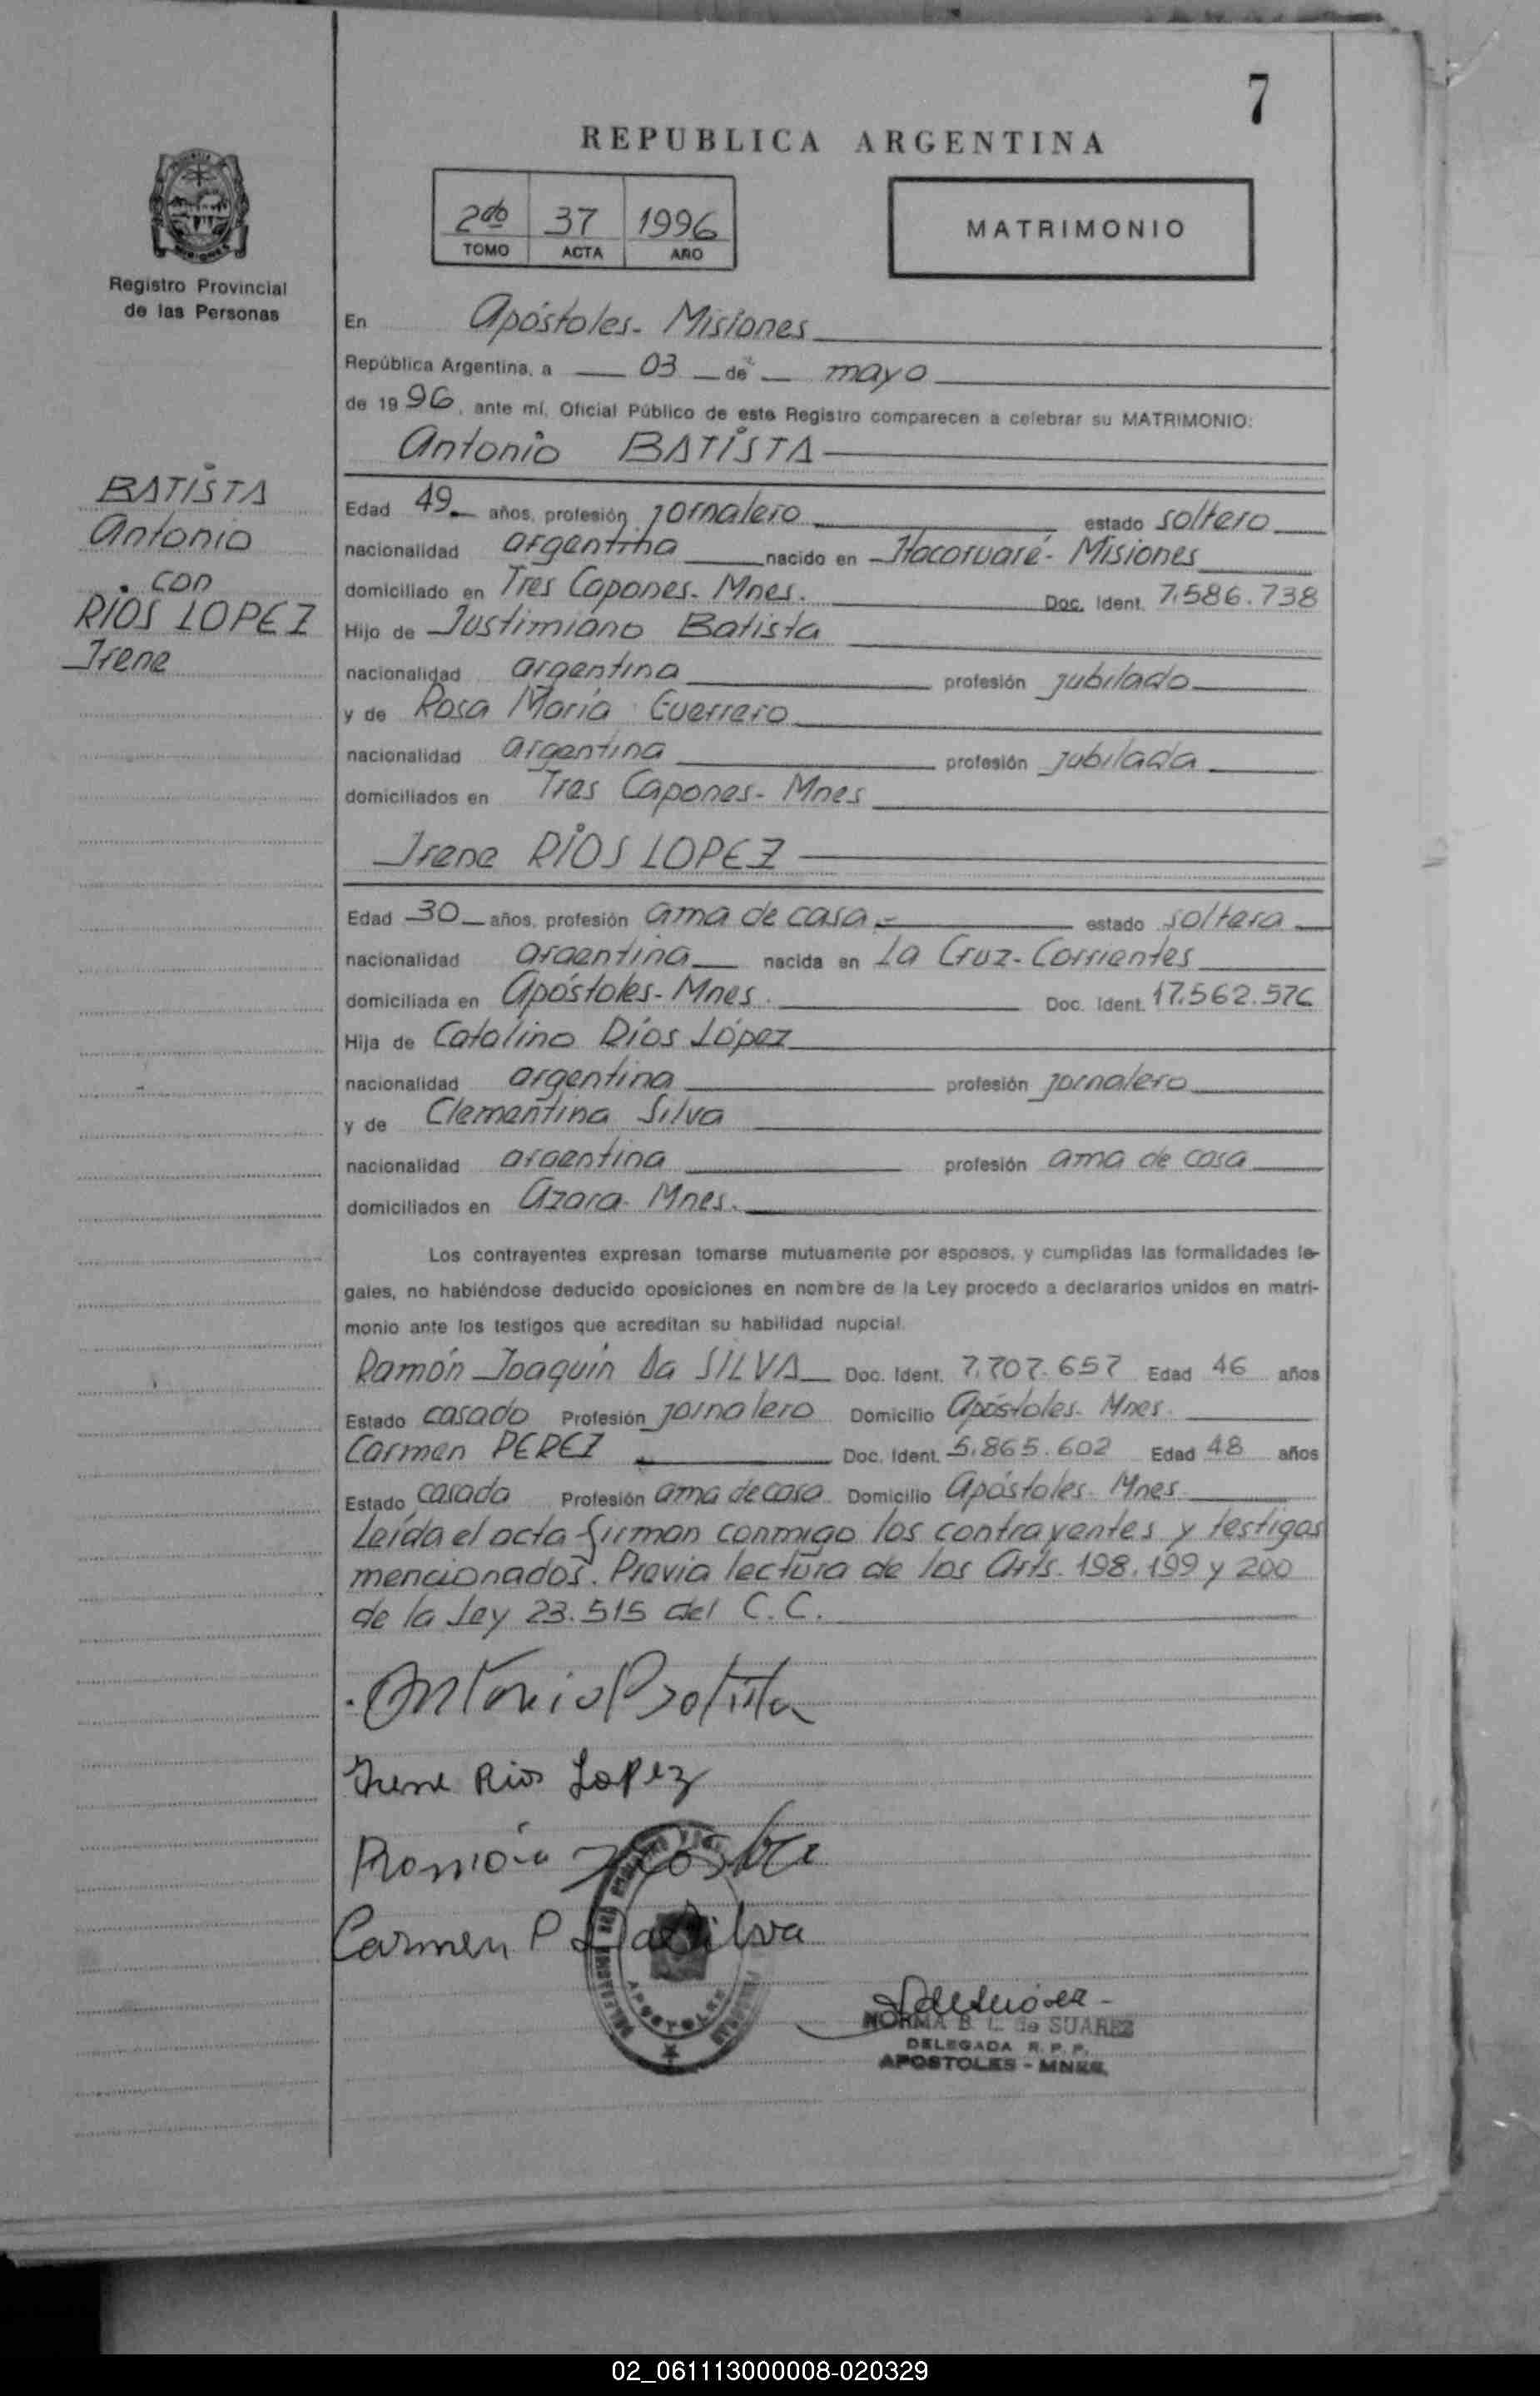 7
REPUBLICA ARGENTINA
2do 37 1996
TOMO ACTA AÑO
MATRIMONIO
Registro Provincial
de las Personas
En Apóstoles- Misiones
República Argentina, a 03 de mayo
de 1996, ante mí, Oficial Público de este Registro comparecen a celebrar su MATRIMONIO:
Antonio BATISTA
BATISTA
Antonio
con
RIOS LOPEZ
Irene
Edad 49 años, profesión jornalero estado soltero
nacionalidad argentina nacido en Itacaruaré- Misiones
domiciliado en Tres Capones- Mnes. Doc. Ident. 7.586.738
Hijo de Justimiano Batista
nacionalidad argentina profesión jubilado
y de Rosa María Guerrero
nacionalidad argentina profesión jubilada
domiciliados en Tres Capones- Mnes
Irene RIOS LOPEZ
Edad 30 años, profesión ama de casa estado soltera
nacionalidad argentina nacida en La Cruz- Corrientes
domiciliada en Apóstoles- Mnes. Doc. Ident.
Hija de Catalino Ríos López
nacionalidad argentina profesión jornalero
y de Clementina Silva
nacionalidad argentina profesión ama de casa
domiciliados en Azara- Mnes.
Los contrayentes expresan tomarse mutuamente por esposos, y cumplidas las formalidades le-
gales, no habiéndose deducido oposiciones en nombre de la Ley procedo a declararlos unidos en matri-
monio ante los testigos que acreditan su habilidad nupcial.
Ramón Joaquín Da SILVA Doc. Ident. 7.707.657 Edad 46 años
Estado casado Profesión jornalero Domicilio Apóstoles- Mnes.
Carmen PEREZ Doc. Ident. 5.865.602 Edad 48 años
Estado casada Profesión ama de casa Domicilio Apóstoles- Mnes
Leída el acta firman conmigo los contrayentes y testigos
mencionados. Previa lectura de los Arts. 198, 199 y 200
de la Ley 23.515 del C.C.
Antonio Batista
Irene Rios Lopez
Carmen P Da Silva
APOSTOLES
NORMA B. L. de SUAREZ
DELEGADA R. P. P.
APOSTOLES - MNES.
02_061113000008-020329